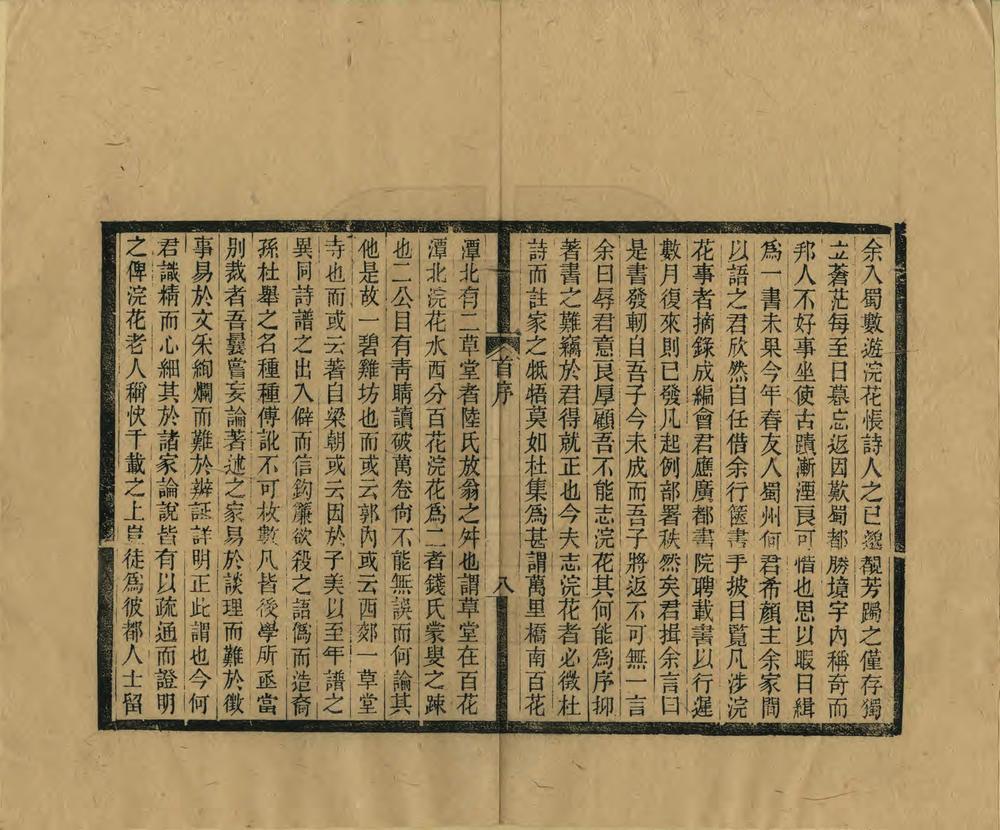 余入蜀數遊浣花悵詩人之已邈醜芳躅之僅存獨
立蒼茫每至日暮忘返因歎蜀都勝境宇內稱奇而
邦人不好事坐使古蹟漸湮良可惜也思以暇日緝
爲一書未果今年春友人蜀州何君希顏主余家間
以語之君欣然自任借余行篋書手披目覽凡涉浣
花事者摘錄成編會君應廣都書院聘載書以行遲
數月復來則已發凡起例部署秩然矣君揖余言曰
是書發軔自吾子今未成而吾子將返不可無一言
余曰辱君意良厚顧吾不能志浣花其何能爲序抑
著書之難竊於君得就正也今夫志浣花者必徵杜
詩而註家之牴牾莫如杜集爲甚謂萬里橋南百花
首序
八
潭北有二草堂者陸氏放翁之舛也謂草堂在百花
潭北浣花水西分百花浣花爲二者錢氏蒙叟之疎
也二公目有靑睛讀破萬卷尙不能無誤而何論其
他是故一碧雞坊也而或云郭內或云西郊一草堂
寺也而或云著自梁朝或云因於子美以至年譜之
異同詩譜之出入僻而信鈎簾欲殺之語僞而造裔
孫杜舉之名種種傳訛不可枚數凡皆後學所亟當
別裁者吾曩嘗妄論著述之家易於談理而難於徵
事易於文采絢爛而難於辨証詳明正此謂也今何
君識精而心細其於諸家論說皆有以疏通而證明
之俾浣花老人稱快千載之上豈徒爲彼都人士留